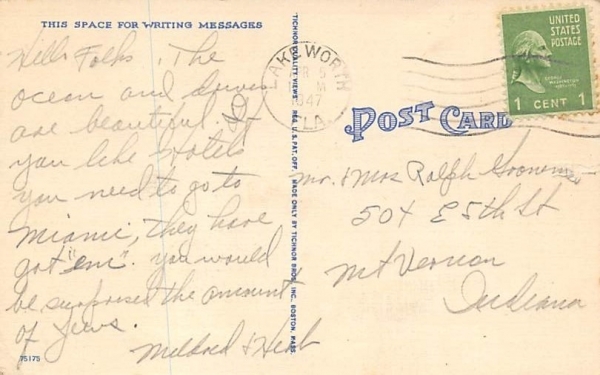 THIS SPACE FOR WRITING MESSAGES
Hello Folks. The
ocean and drives
are beautiful. If
you like Hotels
you need to go to
Miami, they have
got "em". You would
be surprised the amount
of Jews.
Mildred & Herb
75175
TICHNOR QUALITY VIEWS REG. U.S. PAT. OFF. MADE ONLY BY TICHNOR BROS. INC. BOSTON, MASS.
LAKE WORTH
5
1947
FLA.
UNITED
STATES
POSTAGE
GEORGE
WASHINGTON
1 CENT 1
POST CARD
Mr. & Mrs Ralph
504 E 5th St
Mt Vernon
Indiana